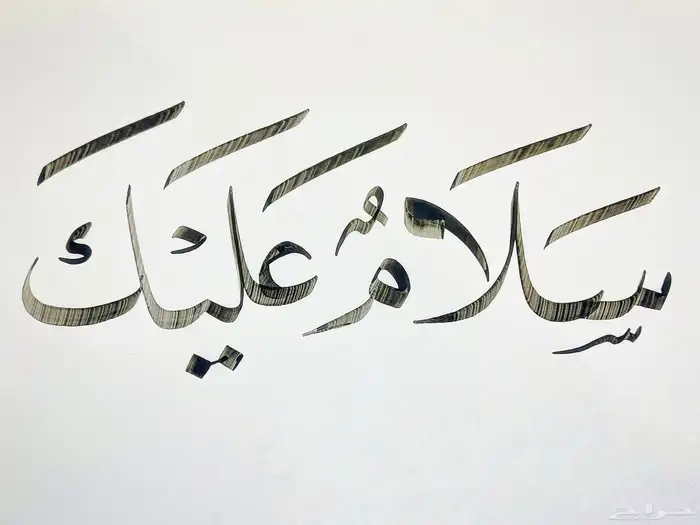 سَلَامٌ عَلَيْكَ
حراج